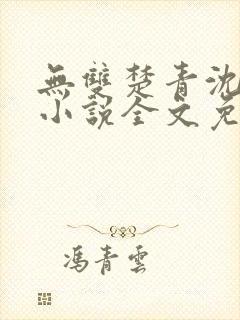 無雙楚青沈
小說全文免
馮青雲